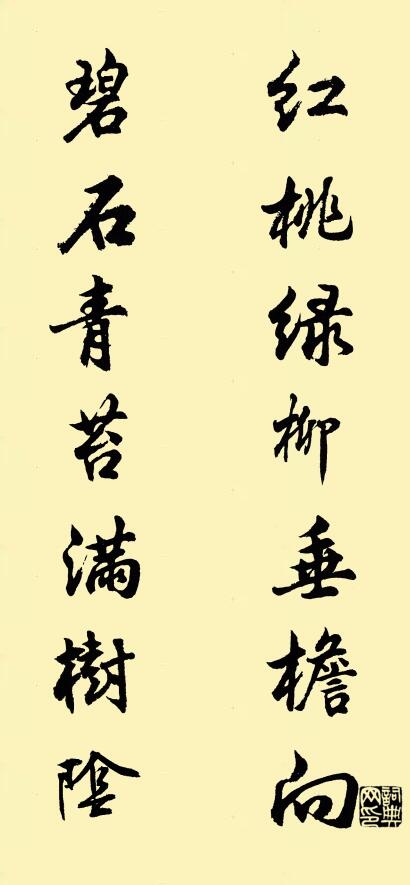 红桃绿柳垂檐向
碧石青苔满樹陰
詞典网印